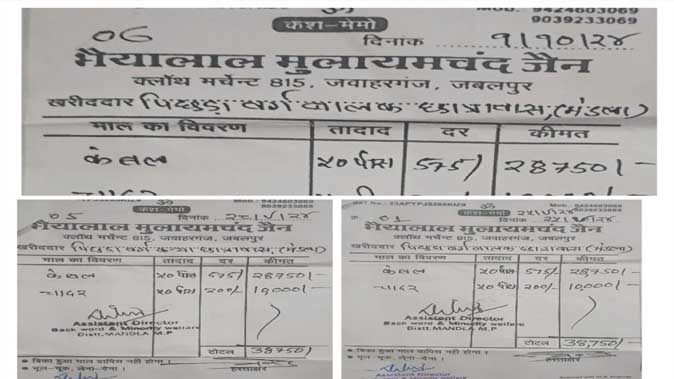 ॐ
MOB.: 9424603069
9039233069
कैश-मेमो
06 दिनांक 9/10/24
भैयालाल मुलायमचंद जैन
क्लॉथ मर्चेन्ट 815, जवाहरगंज, जबलपुर
खरीददार पिछड़ा वर्ग बालक छात्रावास, (मंडला)
माल का विवरण तादाद दर कीमत
कंबल ५० पीस 575/ 28750/-
ॐ
Mob.: 9424603069
9039233069
कैश-मेमो
05 दिनांक
भैयालाल मुलायमचंद जैन
क्लॉथ मर्चेन्ट 815, जवाहरगंज, जबलपुर
खरीददार पिछड़ा वर्ग कन्या छात्रावास, (मंडला)
माल का विवरण तादाद दर कीमत
कंबल ५० पीस 575/ 28750/-
चादर ५० पीस 200/ 10,000/-
Assistant Director
Back ward & Minority welfare
Distt. MANDLA M.P
टोटल 38750/
बिका हुआ माल वापिस नहीं होगा।
भूल-चूक, लेना-देना। हस्ताक्षर
ॐ
Mob.: 9424603069
9039233069
कैश-मेमो
01 दिनांक
भैयालाल मुलायमचंद जैन
क्लॉथ मर्चेन्ट 815, जवाहरगंज, जबलपुर
खरीददार पिछड़ा वर्ग बालक छात्रावास (मंडला)
माल का विवरण तादाद दर कीमत
कंबल ५० पीस 575/ 28750/-
चादर ५० पीस 200/ 10,000/-
Assistant Director
Back ward & Minority welfare
Distt. MANDLA M.P
टोटल 38,750/
बिका हुआ माल वापिस नहीं होगा।
भूल-चूक, लेना-देना। हस्ताक्षर
Assistant Director